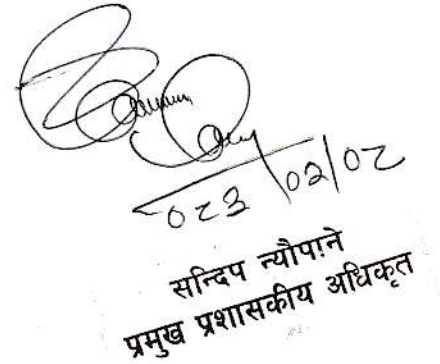 २०८३/०२/०८
सन्दिप न्यौपाने
प्रमुख प्रशासकीय अधिकृत